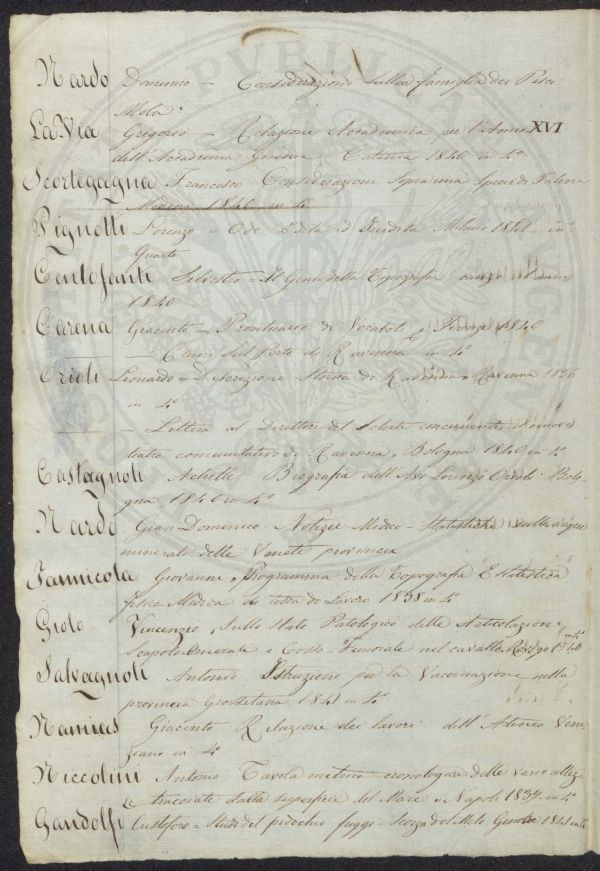 Nardo Domenico - Considerazioni sulla famiglia dei Pesci
Mola
La Via Gregorio - Relazione Accademica per l'Anno XVI
dell'Accademia Gioenia Catania 1840 in 4°
Scortegagna Francesco Considerazione sopra una specie di
Modena 1840 in 4°
Pignotti Lorenzo - Ode edita ed inedita Milano 1841 in
Quarto
Centofanti Silvestro - Il Genio della Topografia anno
1840
Carena Giacinto - Prontuario di Vocaboli Firenze 1840
- Cenni sul Porto di Ravenna in 4°
Orioli Leonardo - Descrizione Storica di Ravenna Ravenna 1836
in 4°
- Lettera al Direttore del Solerte concernente il nuovo
teatro comunitativo di Ravenna, Bologna 1840 in 4°
Castagnoli Achille Biografia dell'Avv Lorenzo Orioli Bolo
gna 1840 in 4°
Nardo Gian Domenico Notizie Medico-Statistiche sulle acque
minerali delle Venete provincia
Iannicola Giovanni, Programma della Topografia E Statistica
fisica Medica di terra di Lavoro 1838 in 4°
Giolo Vincenzio, Sullo Stato Patologico delle Articolazioni
in 4°
Scapolo Omerale e Cosso-Femorale nel cavallo Rovigo 1840
Salvagnoli Antonio Istruzione per la Vaccinazione nella
provincia Grossetana 1841 in 4°
Namias Giacinto Relazione dei lavori dell'Ateneo Vene
ziano in 4°
Niccolini Antonio Tavola metrica-cronologica delle varie altez
ze tracciate dalla superficie del Mare, Napoli 1839 in 4°
Gandolfi Cristoforo - Studi del pidocchio Scorza del Melo Genova 1841 in 4°
PVBLICA